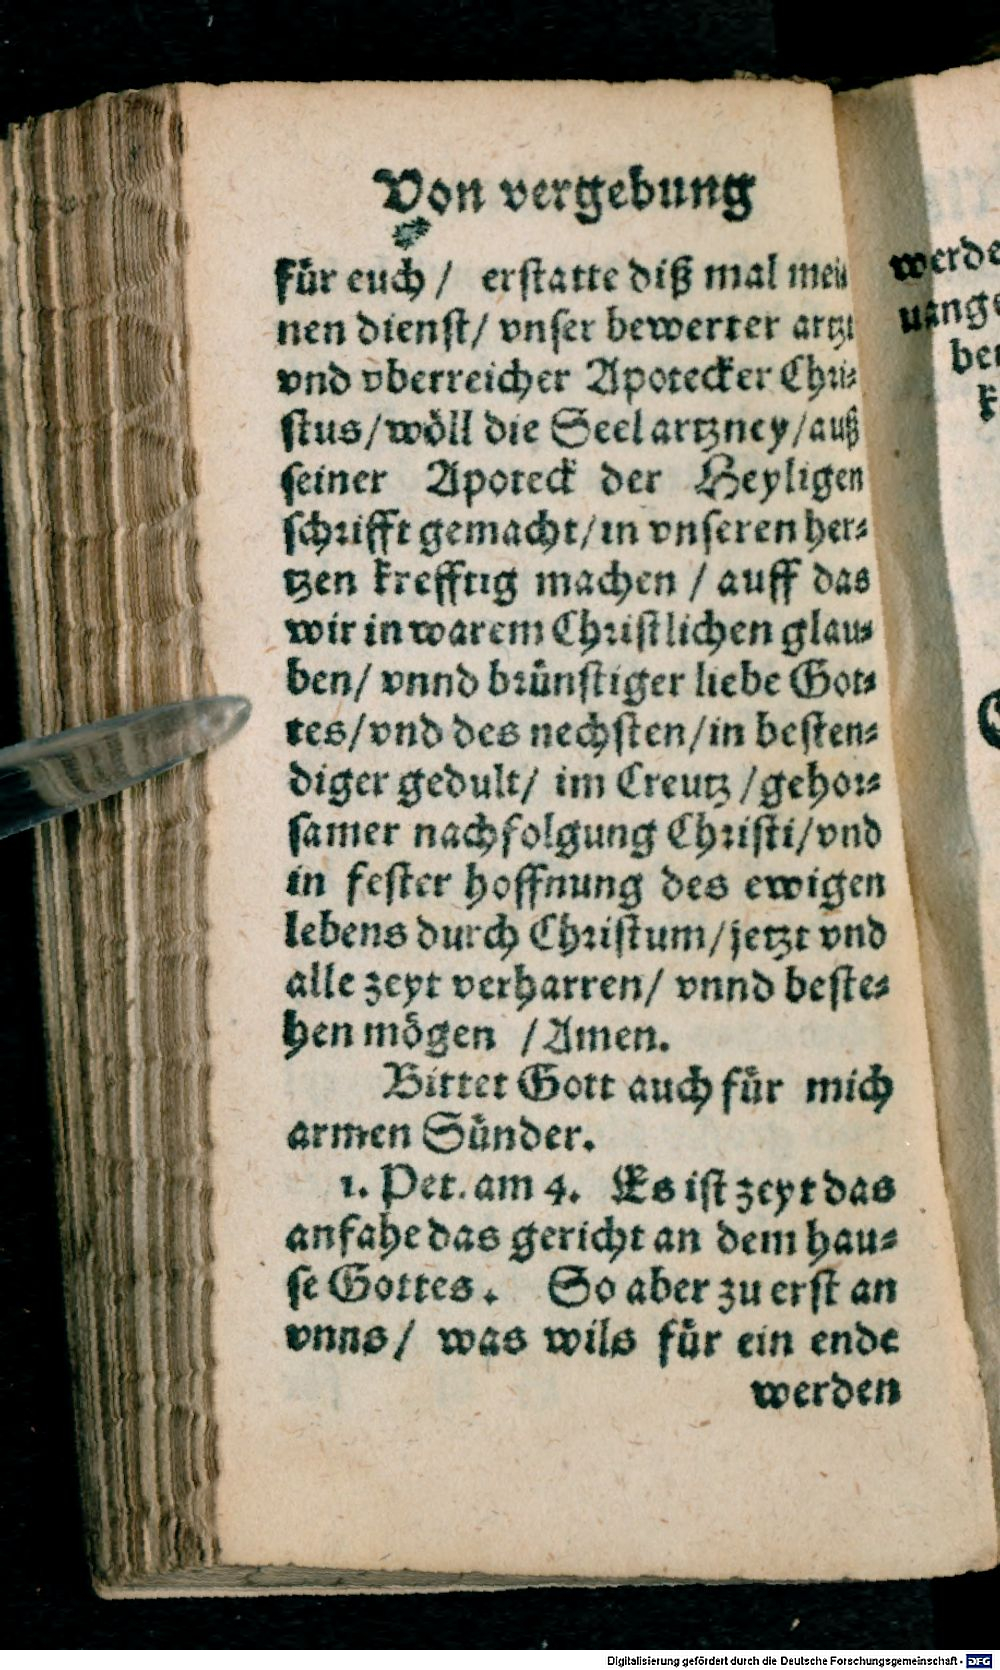 Von vergebung
für euch / erstatte diß mal mei
nen dienst/ vnser bewerter artzt
vnd vberreicher Apotecker Chri-
stus/wöll die Seelartzney/auß
seiner Apoteck der Heyligen
schrifft gemacht/in vnseren her-
tzen krefftig machen / auff das
wir in warem Christlichen glau-
ben/ vnnd brünstiger liebe Got-
tes/vnd des nechsten/in besten-
diger gedult/ im Creutz /gehor-
samer nachfolgung Christi/vnd
in fester hoffnung des ewigen
lebens durch Christum/jetzt vnd
alle zeyt verharren/ vnnd beste-
hen mögen /Amen.
Bittet Gott auch für mich
armen Sünder.
1. Pet. am 4. Es ist zeyt das
anfahe das gericht an dem hau-
se Gottes. So aber zu erst an
vnns/ was wils für ein ende
werden
werde
uange
Digitalisierung gefördert durch die Deutsche Forschungsgemeinschaft - DFG